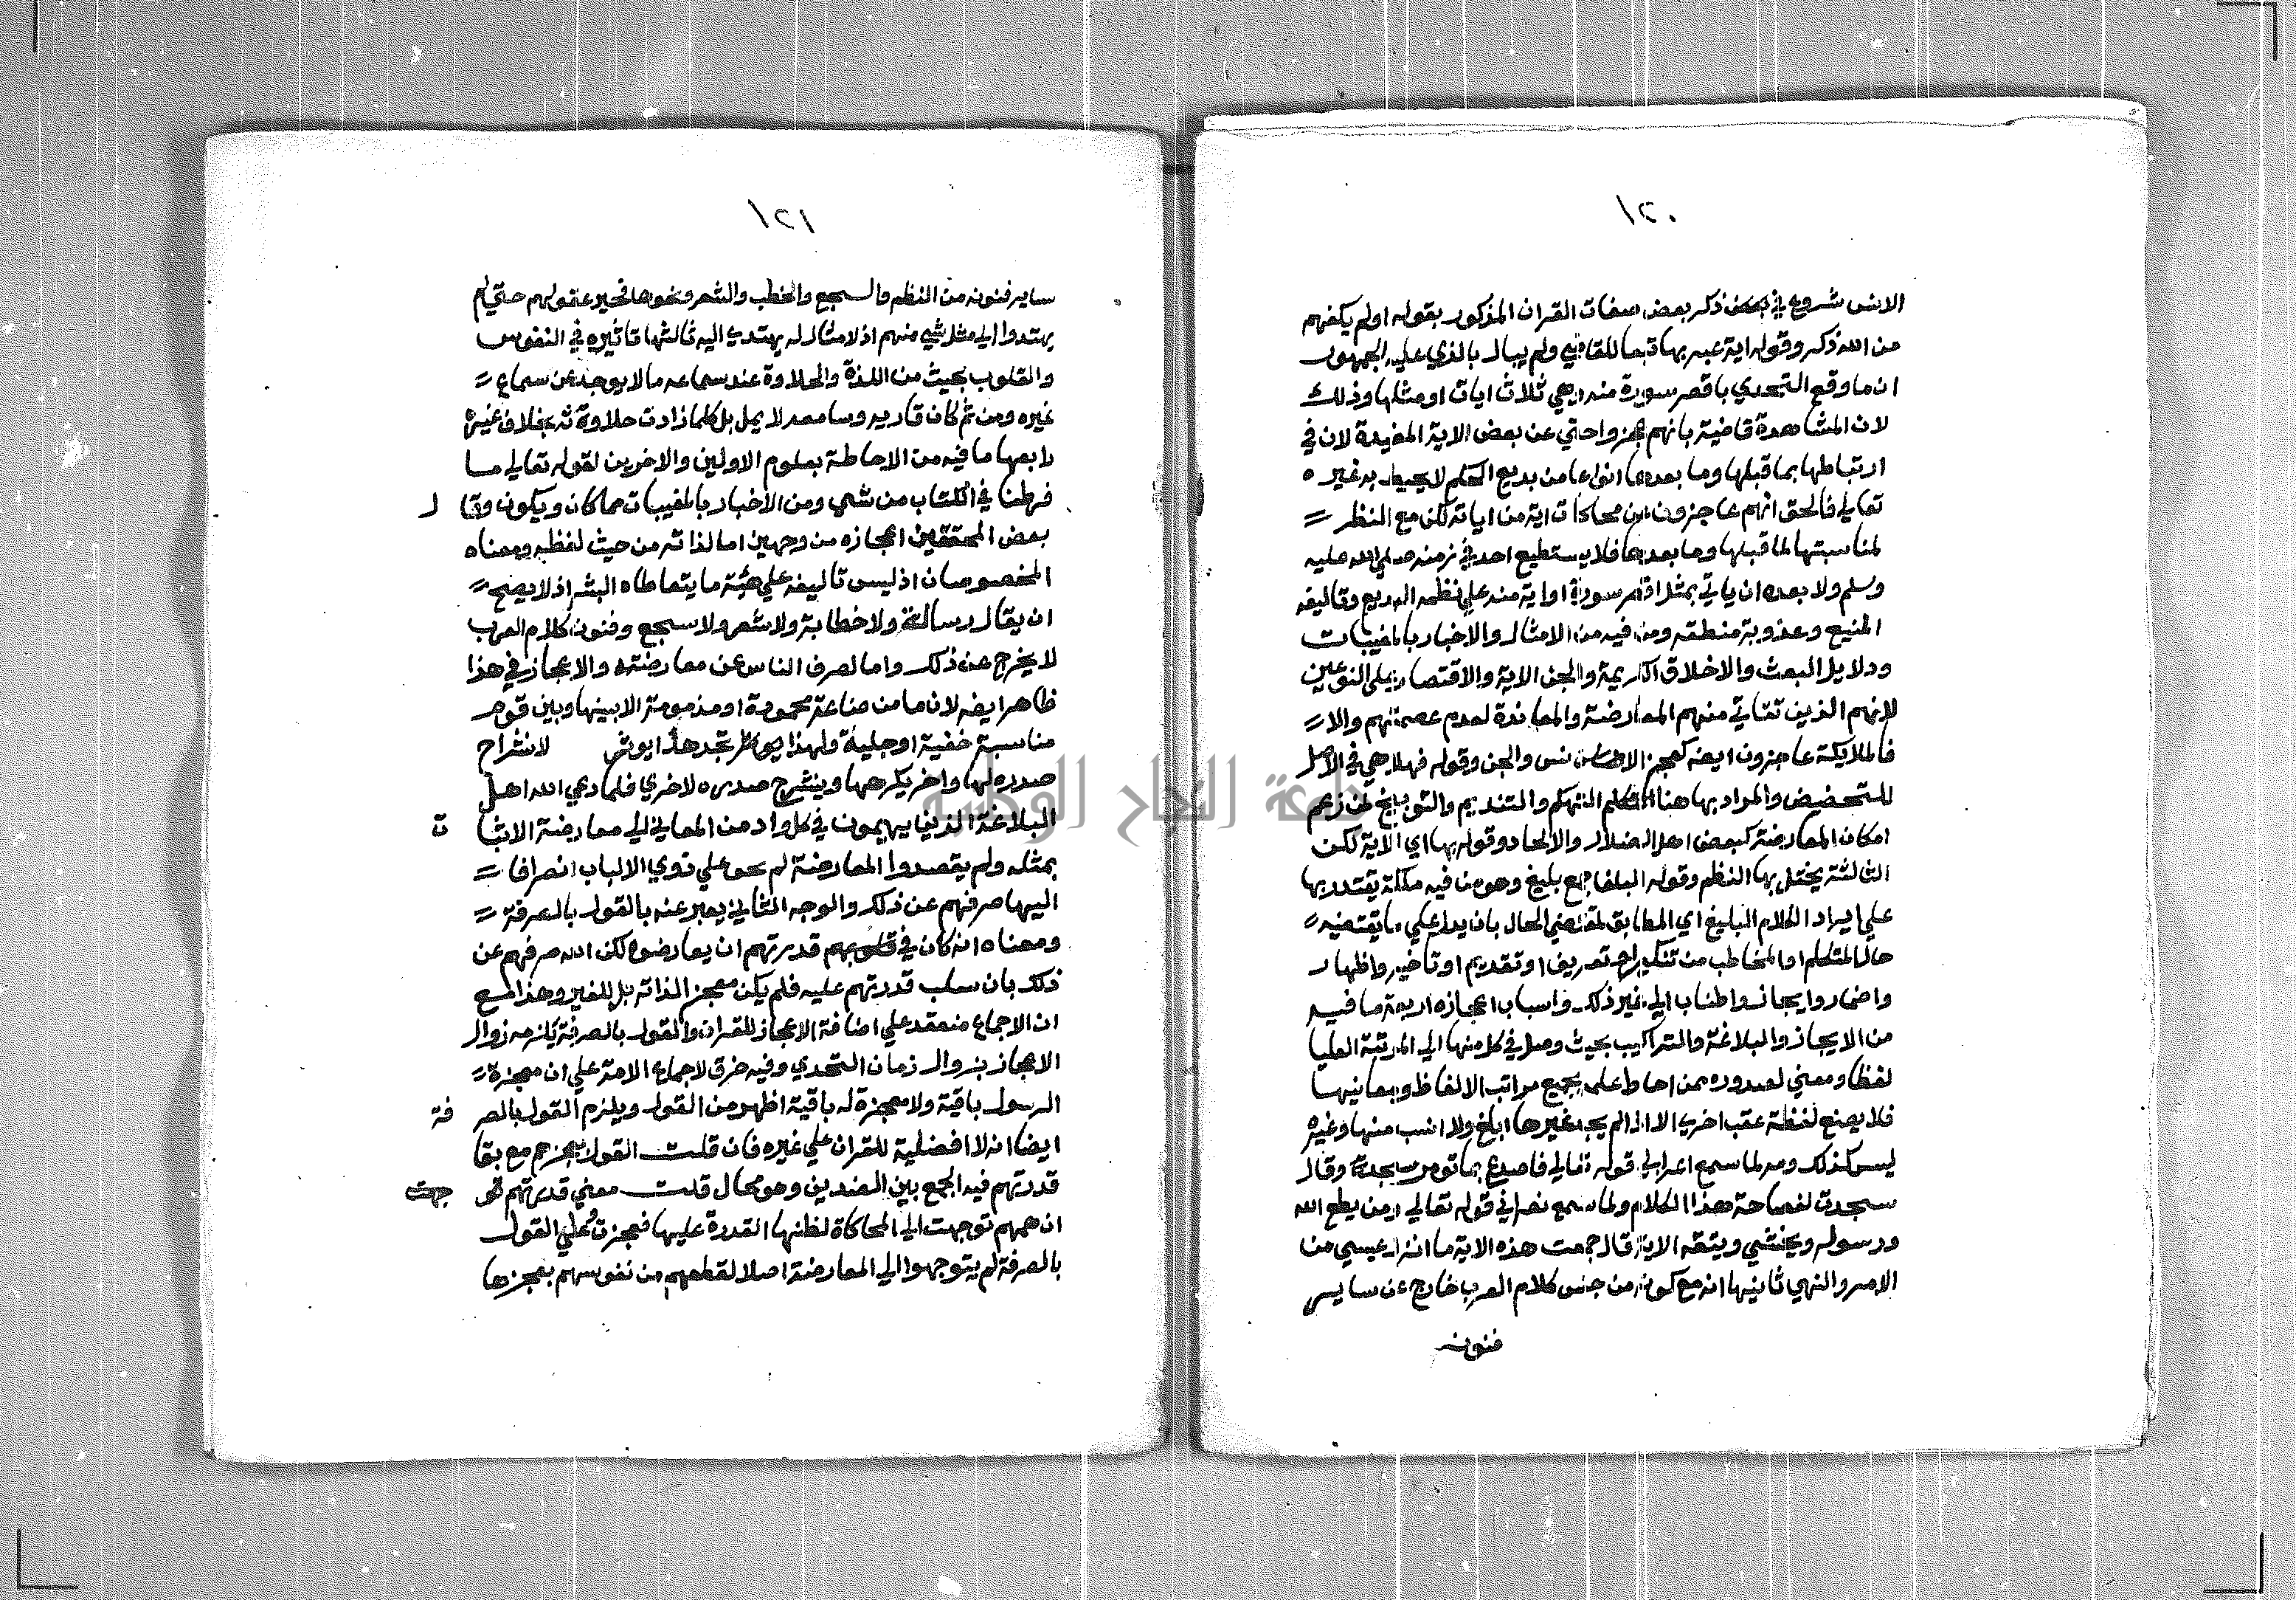 ١٢٠
الانس شروع في بعض ذكر بعض صفات القران المذكور بقوله اولم يكفهم
من الله ذكر وقوله اية عبر بها تبعا للقاضي ولم يبال بالذي عليه الجمهور
ان ما وقع التحدي باقصر سورة منه وهي ثلاث ايات او مثلها وذلك
لان المشاهدة قاضية بانهم عجزوا حتي عن بعض الاية المفيدة لان في
ارتباطها بما قبلها وما بعدها انواعا من بديع الحكم لا يحيط به غيره
تعالي فالحق انهم عاجزون عن محاكات اية من اياته لكن مع النظر
لمناسبتها لما قبلها وما بعدها فلا يستطيع احد في زمنه صلي الله عليه
وسلم ولا بعده ان ياتي بمثل اقصر سورة او اية منه علي نظمه البديع وتاليفه
المنيع وعذوبة منطقه وما فيه من الامثال والاخبار بالمغيبات
ودلايل البعث والاخلاق الكريمة والجن الاية والاقتصار علي النوعين
لانهم الذين تتاتي منهم المعارضة والمعاندة لعدم عصمتهم والا
فالملايكة عاجزون ايضه كعجز الانس والجن وقوله فهلا هي في الاصل
للتحضيض والمراد بها هنا التهكم والتنديم والتوبيخ لمن زعم
امكان المعارضة كبعض اهل الضلال والالحاد وقوله بها اي الاية لكن
الثالثة يختل بها النظم وقوله البلغا جمع بليغ وهو من فيه ملكة يقتدر بها
علي ايراد الكلام البليغ اي المطابق لمقتضي الحال بان يدل علي ما يقتضيه
حال المتكلم او المخاطب من تنكير او تعريف او تقديم او تاخير واظهار
واضمار وايجاز واطناب الي غير ذلك واسباب اعجازه اربعة ما فيه
من الايجاز والبلاغة والتراكيب بحيث وصل في كل منها الي المرتبة العليا
لفظا ومعني لصدوره ممن احاط علمه بجميع مراتب الالفاظ وبمعانيها
فلا يضع لفظة عقب اخري الا لم يجد غيرها ابلغ ولا انسب منها وغيره
ليس كذلك ومن لما سمع اعرابي قوله تعالي فاصدع بما تومر سجد وقال
سجدت لفصاحة هذا الكلام ولما سمع نصراني قوله تعالي ومن يطع الله
ورسوله ويخشي ويتقه الاية قال جمعت هذه الاية ما انزل عيسي من
الامر والنهي ثانيها انه مع كونه من جنس كلام العرب خارج عن ساير
فنونه
١٢١
ساير فنونه من النظم والسجع والخطب والشعر ونحوها فحير عقولهم حتي لم
يهتدوا الي مثل شي منهم اذ لا مثال له يهتدي اليه ثالثها تاثيره في النفوس
والقلوب بحيث من اللذة والحلاوة عند سماعه ما لا يوجد عن سماع
غيره ومن ثم كان قاريه وسامعه لا يمل بل كلما زادت حلاوته بخلاف غيره
رابعها ما فيه من الاحاطة بعلوم الاولين والاخرين لقوله تعالي ما
فرطنا في الكتاب من شي ومن الاخبار بالمغيبات مما كان ويكون وقال
بعض المحققين اعجازه من وجهين اما لذاته من حيث لفظه ومعناه
المخصوصان اذ ليس تاليفه علي هيئة ما يتعاطاه البشر اذ لا يصح
ان يقال رسالة ولا خطابة ولا شعر ولا سجع وفنون كلام العرب
لا يخرج عن ذلك واما لصرف الناس عن معارضته والاعجاز في هذا
ظاهر ايضه لان ما من صناعة محمودة او مذمومة الا بينها وبين قوم
مناسبة خفية او جلية ولهذا تجد هذا يوثر لانشراح
صدره لها واخر يكرهها وينشرح صدره لاخري فلما دعي الله اهل
البلاغة الذين يهيمون في كل واد من المعاني الي معارضة الاتيان
بمثله ولم يقصدوا المعارضة لم علي ذوي الالباب انصرافا
اليها صرفهم عن ذلك والوجه الثاني يعبر عنه بالقول بالصرفة
ومعناه انه كان في قدرتهم ان يعارضوه لكن الله صرفهم عن
ذلك بان سلب قدرتهم عليه فلم يكن معجز الذاته بل للغير وهذا مع
ان الاجماع منعقد علي اضافة الاعجاز للقران والقول بالصرفة يلزمه زوال
الاعجاز بزوال زمان التحدي وفيه خرق لاجماع الامة علي ان معجزة
الرسول باقية ولا معجزة له باقية اظهر من القول ويلزم القول بالصرفة
ايضا انه لا افضلية للقران علي غيره فان قلت القول بعجزهم مع بقا
قدرتهم فيه الجمع بين الضدين وهو محال قلت معني قدرتهم توجهت
ان هممهم توجهت الي المحاكاة لظنها القدرة عليها فعجزت وعلي القول
بالصرفة لم يتوجهوا الي المعارضة اصلا لقطعهم من نفوسهم بعجزها
جامعة النجاح الوطنية